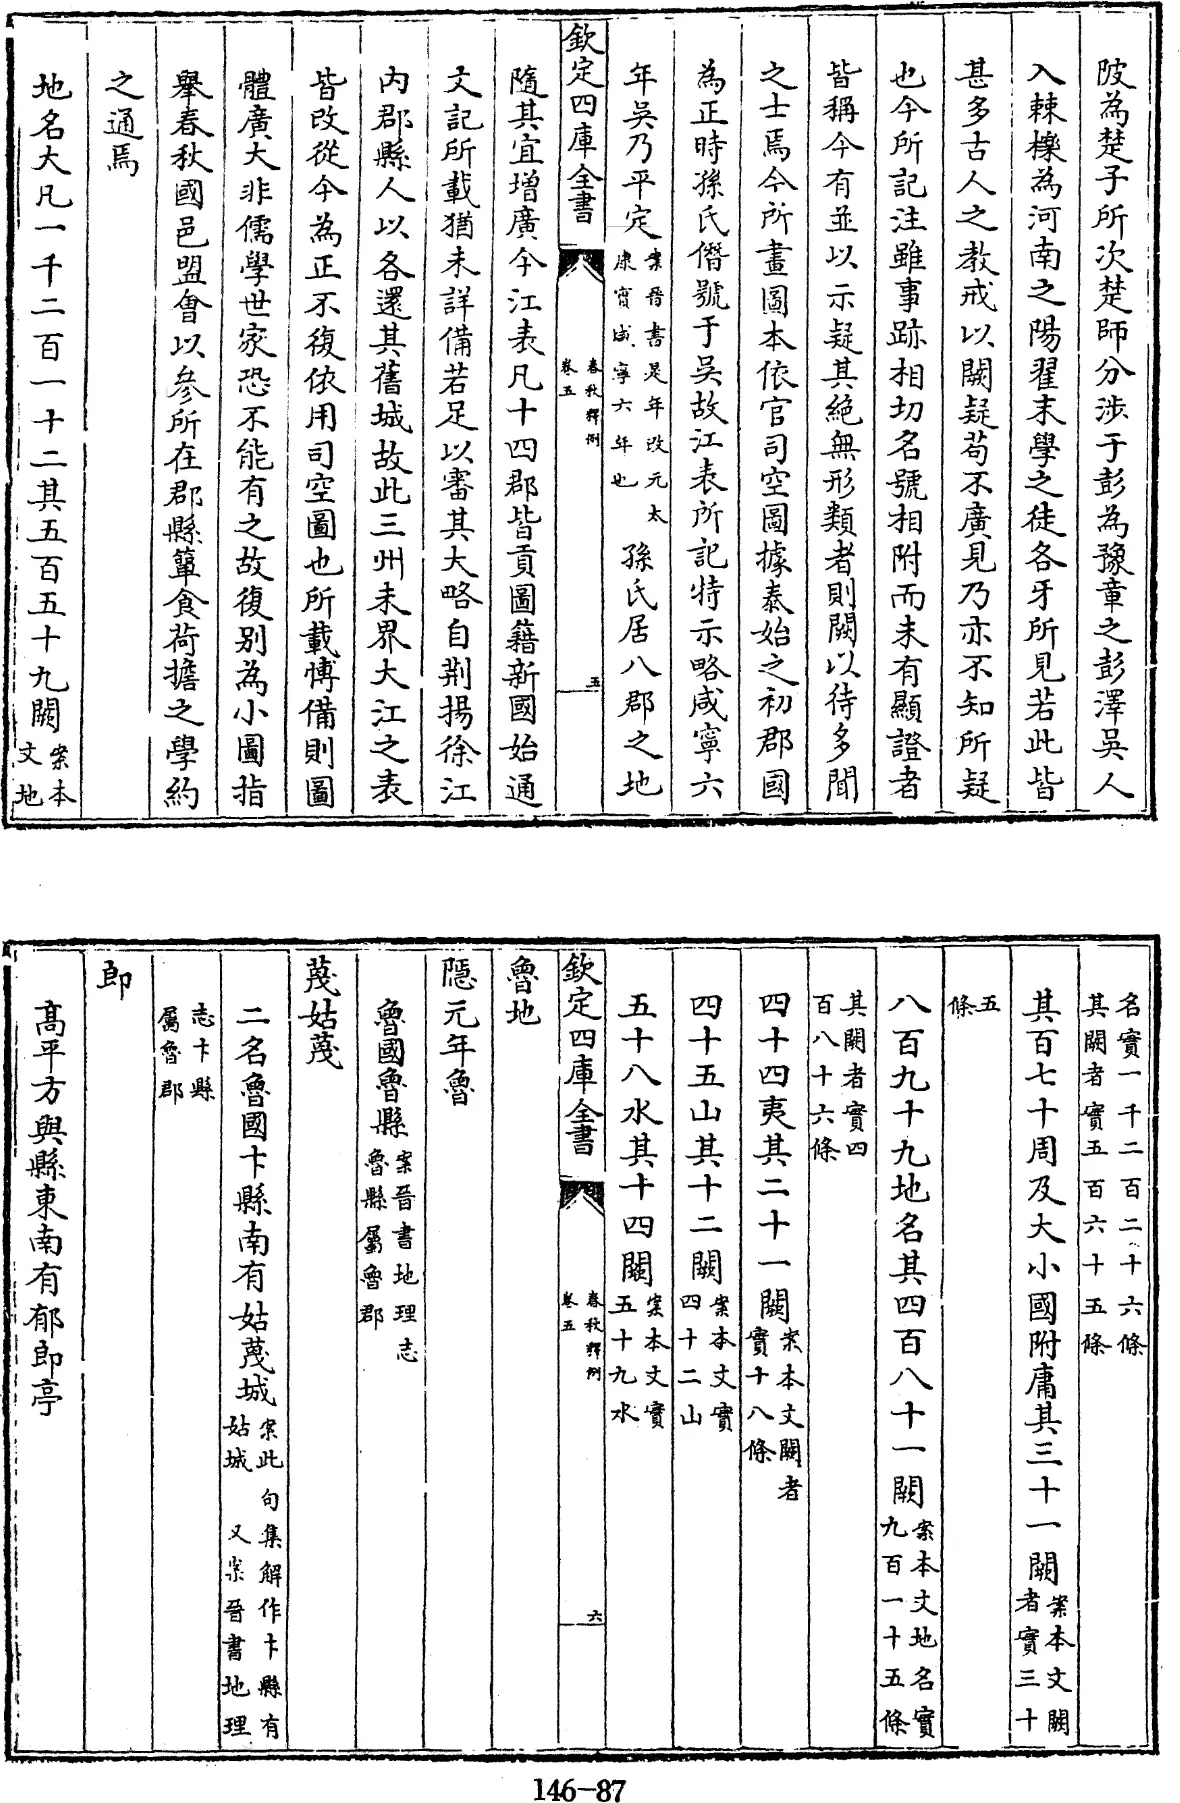 陂為楚子所次楚師分涉于彭為豫章之彭澤吳人
入棘櫟為河南之陽翟末學之徒各牙所見若此皆
甚多古人之教戒以闕疑苟不廣見乃亦不知所疑
也今所記注雖事跡相切名號相附而未有顯證者
皆稱今有並以示疑其絶無形類者則闕以待多聞
之士焉今所畫圖本依官司空圖據泰始之初郡國
為正時孫氏僭號于吳故江表所記特示略咸寧六
年吳乃平定案晉書是年改元太康實咸寧六年也孫氏居八郡之地
欽定四庫全書 春秋釋例 卷五 五
隨其宜增廣今江表凡十四郡皆貢圖籍新國始通
文記所載猶未詳備若足以審其大略自荆揚徐江
内郡縣人以各還其舊城故此三州未界大江之表
皆改從今為正不復依用司空圖也所載愽備則圖
體廣大非儒學世家恐不能有之故復别為小圖指
舉春秋國邑盟會以參所在郡縣簞食荷擔之學約
之通焉
地名大凡一千二百一十二其五百五十九闕案本文地
名實一千二百二十六條其闕者實五百六十五條
其百七十周及大小國附庸其三十一闕案本文闕者實三十
五條
八百九十九地名其四百八十一闕案本文地名實九百一十五條
其闕者實四百八十六條
四十四夷其二十一闕案本文闕者實十八條
四十五山其十二闕案本文實四十二山
五十八水其十四闕案本文實五十九水
欽定四庫全書 春秋釋例 卷五 六
魯地
隱元年魯
魯國魯縣案晉書地理志魯縣屬魯郡
蔑姑蔑
二名魯國卞縣南有姑蔑城案此句集解作卞縣有姑城又案晉書地理
志卞縣屬魯郡
郎
髙平方與縣東南有郁郎亭
146-87